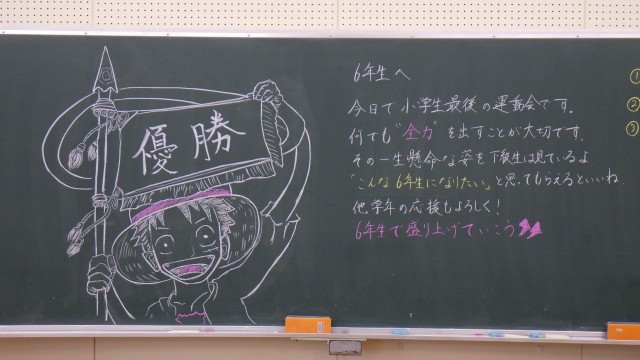 優勝
6年生へ
今日で小学生最後の運動会です。
何でも"全力"を出すことが大切です。
その一生懸命な姿を下級生は見ているよ
「こんな6年生になりたい」と思ってもらえるといいね。
他学年の応援もよろしく!
6年生で盛り上げていこう
①
②
③